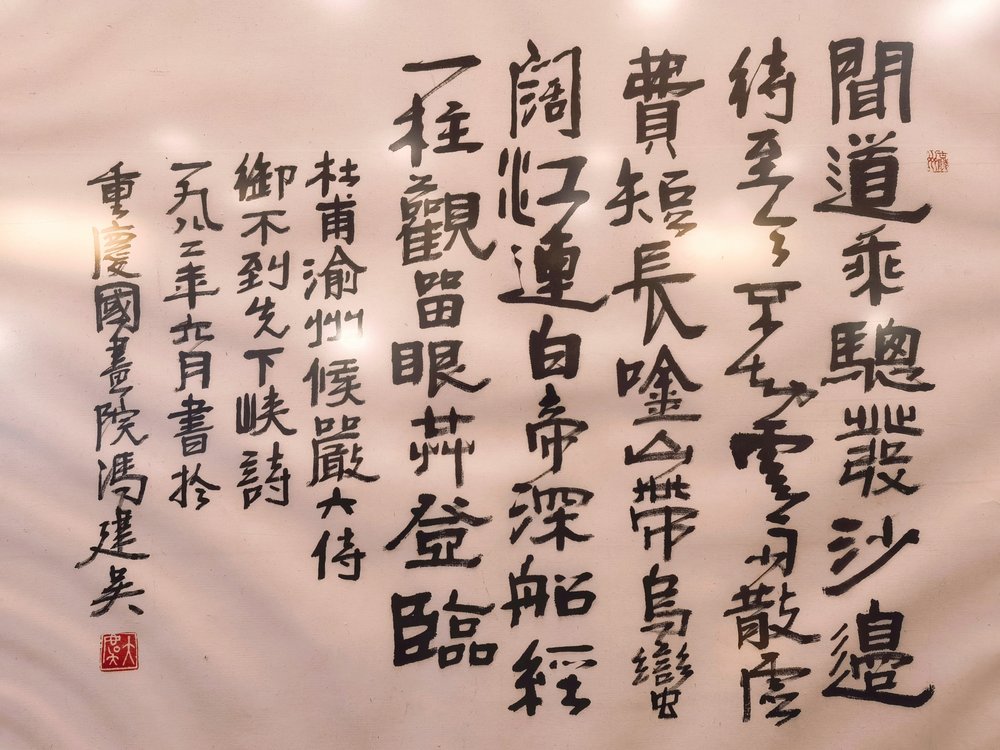 聞道乘驄發沙邊
待至今不知雲雨散虛
費短長唫山帶烏蠻
闊江連白帝深船經
一柱觀留眼共登臨
杜甫渝州候嚴六侍
御不到先下峽詩
一九八二年六月書於
重慶國畫院馮建吳